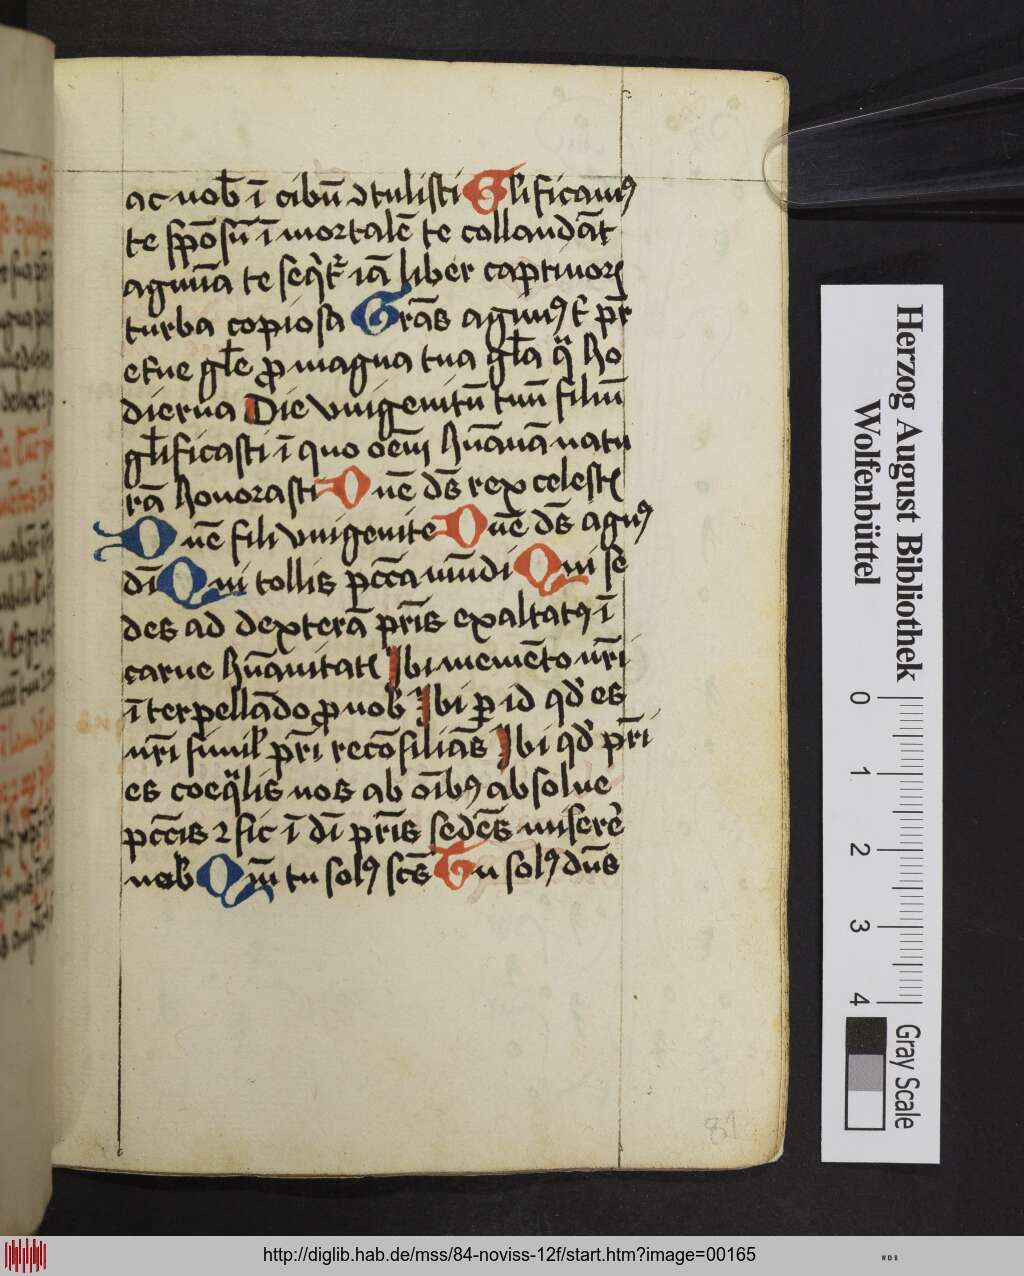 ac nob̄ ī cibū ꝺtulisti Gl̄ificamꝯ
te spōsū īmortalē te collaudāt
agmīa te seq̄t iā liber captiuoꝝ
turba copiosa Grās agimꝯ t pr̄
etne gl̄e ꝓ magna tua gl̄a q̄ ho
dierna Die vnigenitū tuū filiū
gl̄ificasti ī quo oēm hūanā natu
rā honorasti Dnē ds̄ rex celestꝭ
Dnē fili vnigenite Dnē ds̄ agnꝯ
dī Qui tollis pcc̄a mūdi Qui se
des ad dexterā pr̄is exaltatꝯ ī
carne hūanitatꝭ Ibi memēto nr̄i
īterpellādo ꝓ nob̄ Ibi ꝑ id qd̄ es
nr̄i simil̄ pr̄i recōsiliās Ibi qd̄ pr̄i
es coeq̄lis nos ab oībꝯ absolue
pcc̄is ⁊ sic ī dī pr̄is sedēs miserē
nob̄ Qm̄ tu solꝯ scs̄ Tu solꝯ dn̄s
81
Herzog August Bibliothek
Wolfenbüttel
0 1 2 3 4
Gray Scale
http://diglib.hab.de/mss/84-noviss-12f/start.htm?image=00165